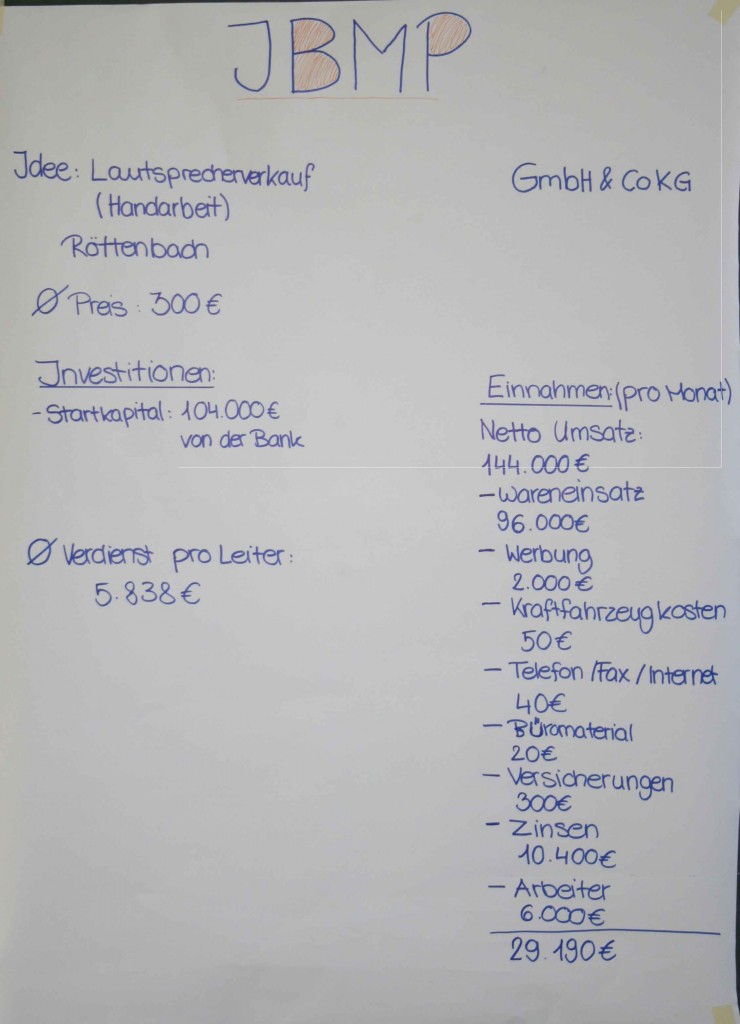 JBMP
Idee: Lautsprecherverkauf
(Handarbeit)
Röttenbach
GmbH & Co KG
Ø Preis: 300€
Investitionen:
- Startkapital: 104.000€
von der Bank
Ø Verdienst pro Leiter:
5.838€
Einnahmen: (pro Monat)
Netto Umsatz:
144.000€
- Wareneinsatz
96.000€
- Werbung
2.000€
- Kraftfahrzeugkosten
50€
- Telefon / Fax / Internet
40€
- Büromaterial
20€
- Versicherungen
300€
- Zinsen
10.400€
- Arbeiter
6.000€
29.190€